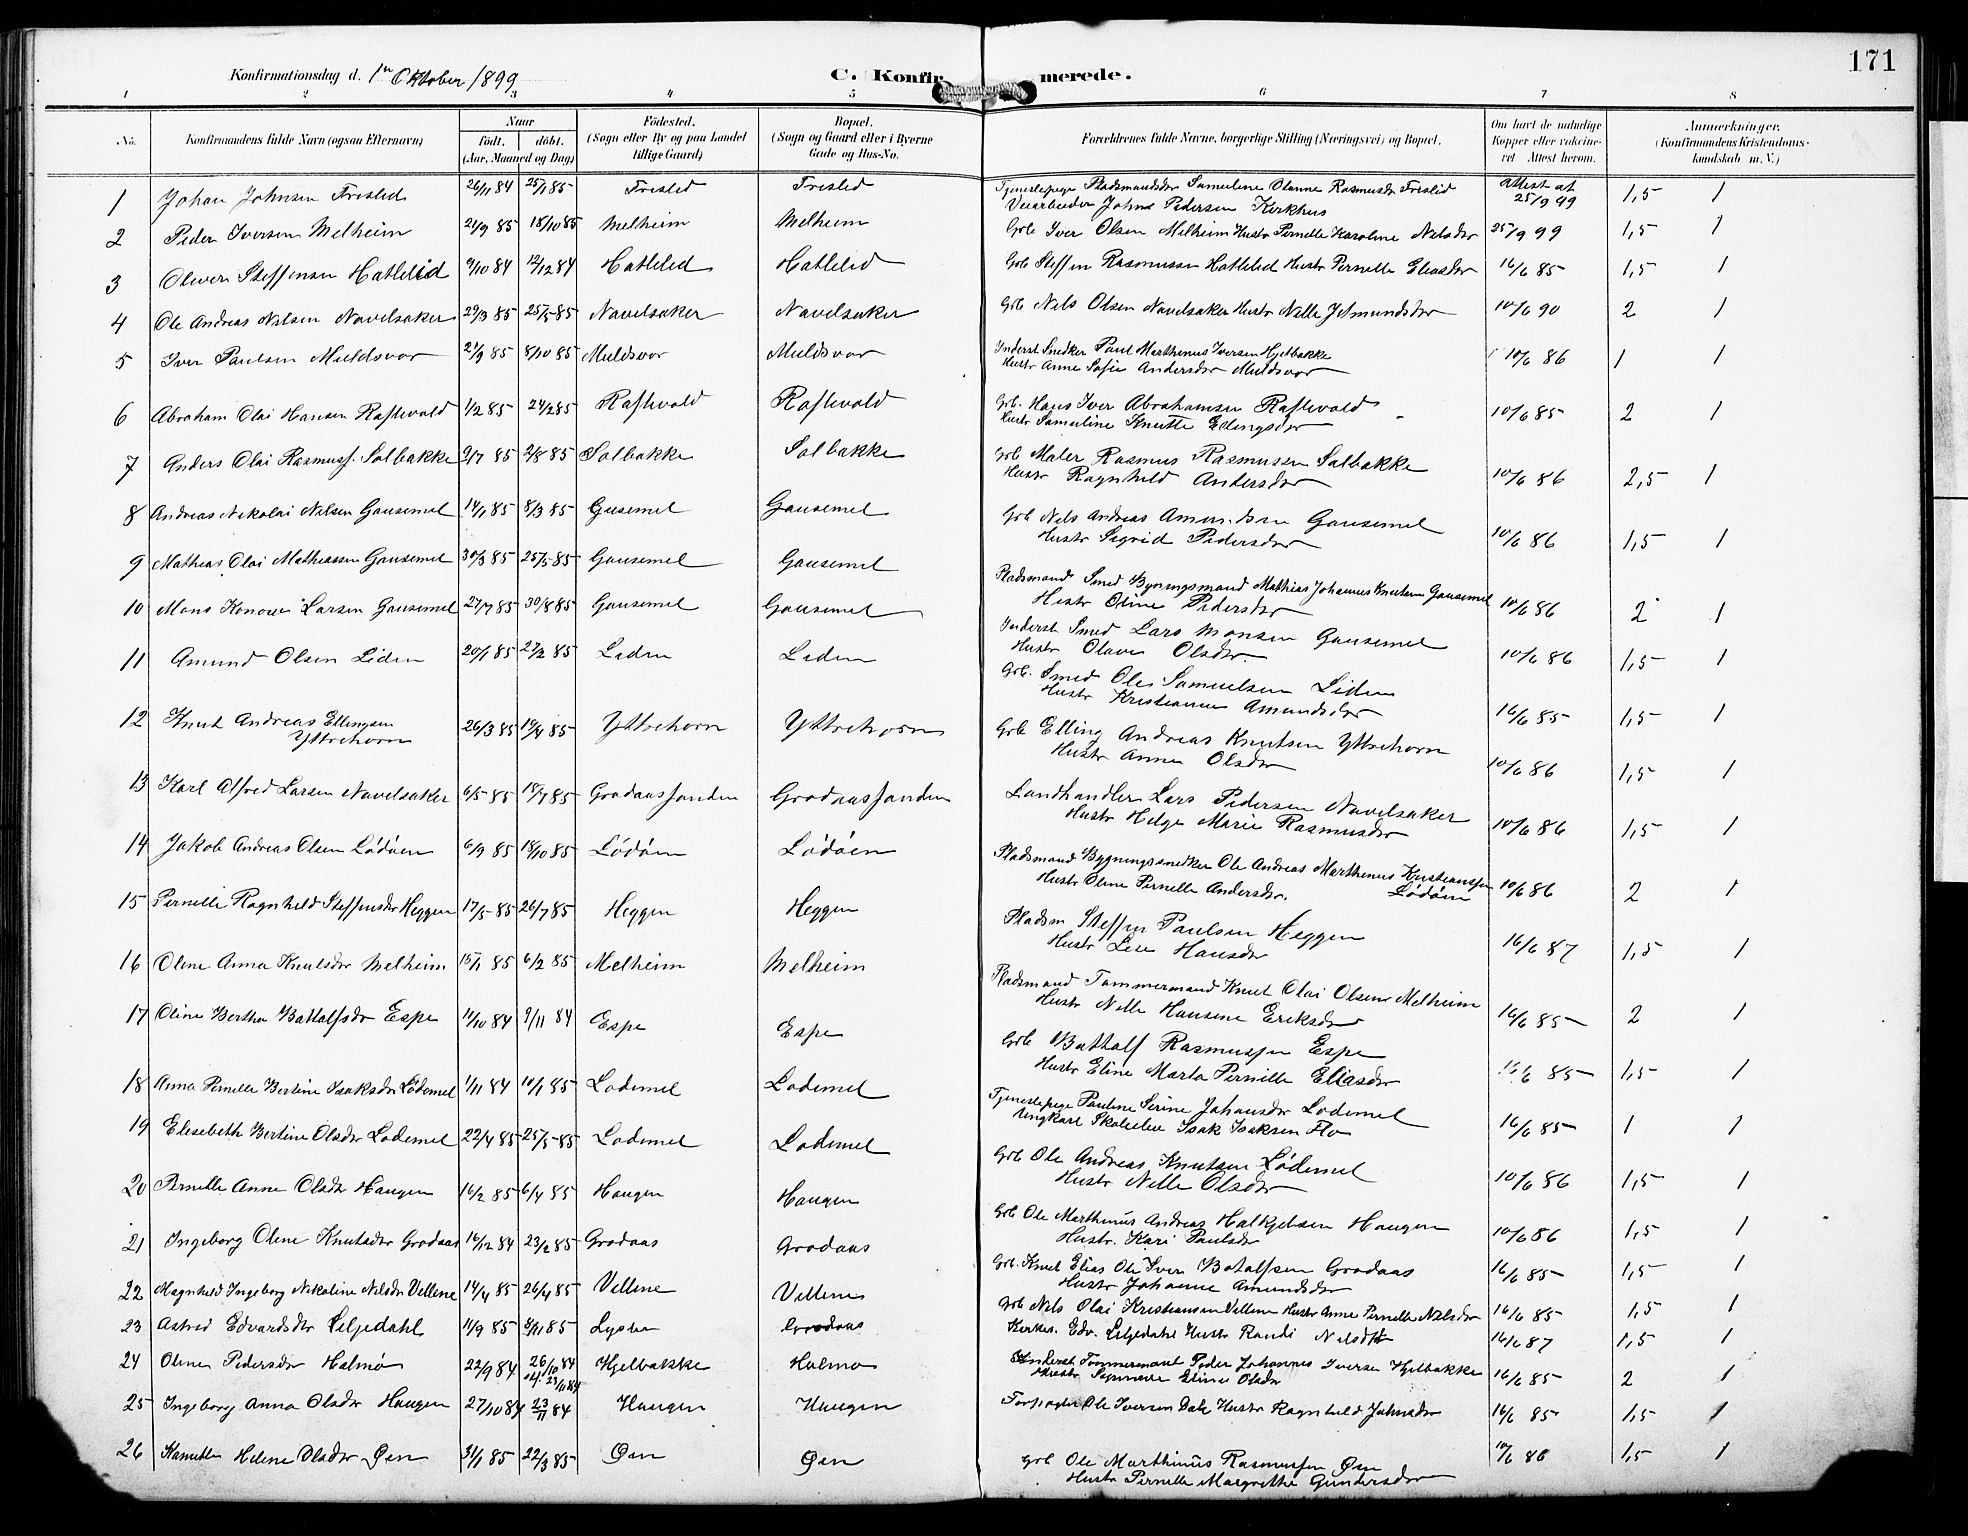 171
Konfirmationsdag d. 1ste Oktober 1899
C. Konfirmerede.
1 2 3 4 5 6 7 8
No. Konfirmandens fulde Navn (ogsaa Efternavn) Naar födt. döbt. (Aar, Maaned og Dag) Födested. (Sogn eller By og paa Landet tillige Gaard) Bopæl. (Sogn og Gaard eller i Byerne Gade og Hus-No. Forældrenes fulde Navne, borgerlige Stilling (Næringsvei) og Bopæl. Om havt de naturlige Kopper eller vaccineret Attest herom. Anmærkninger. (Konfirmandens Kristendomskundskab m. V.)
1 Johan Johnsen Frislid 26/11 84 25/1 85 Frislid Frislid Tjenestepige Pladsmandsdtr Samuline Olanne Rasmusdtr Frislid Attest af 25/9 99 1,5 1
Veiarbeider Johns Pedersen Kirkhus
2 Peder Iversen Melheim 21/9 85 18/10 85 Melheim Melheim Grb Iver Olsen Melheim Hustr Pernille Karoline Nilsdtr 25/9 99 1,5 1
3 Oliver Steffensen Hatlelid 9/10 84 12/12 84 Hatlelid Hatlelid Grb Steffen Rasmussen Hatlelid Hustr Pernille Eliasdtr 16/6 85 1,5 1
4 Ole Andreas Nilsen Navelsaker 29/3 85 25/5 85 Navelsaker Navelsaker Grb Nils Olsen Navelsaker Hustr Nille J Amundsdtr 10/6 90 2 1
5 Iver Paulsen Muldsvor 21/9 85 8/10 85 Muldsvor Muldsvor Inderst Snedker Paul Marthinus Iversen Hjelbakke 10/6 86 1 1
Hustr Anne Sofie Andersdtr Muldsvor
6 Abraham Olai Hansen Raftevold 1/2 85 24/2 85 Raftevold Raftevold Grb. Hans Iver Abrahamsen Raftevold 10/6 85 2 1
Hustr Samuline Knutte Ellingsdtr
7 Anders Olai Rasmuss. Solbakke 2/7 85 2/8 85 Solbakke Solbakke Grb Maler Rasmus Rasmussen Solbakke 10/6 86 2,5 1
Hustr Ragnhild Andersdtr
8 Andreas Nikolai Nilsen Gausemel 14/1 85 8/3 85 Gusemel Gausemel Grb Nils Andreas Amundsen Gausemel 10/6 86 1,5 1
Hustr Sigrid Pedersdtr
9 Mathias Olai Mathiassen Gausemel 30/3 85 25/5 85 Gausemel Gausemel Pladsmand Smed Bygningsmand Mathias Johannes Knutsen Gausemel 10/6 86 2 1
Hustr Oline Pedersdtr
10 Mons Konow Larsen Gausemel 27/7 85 30/8 85 Gausemel Gausemel Inderst Smed Lars Monsen Gausemel 10/6 86 1,5 1
Hustr Olave Olsdtr.
11 Amund Olsen Liden 20/1 85 27/2 85 Liden Liden Grb. Smed Ole Samuelsen Liden 16/6 85 1,5 1
Hustr Kristianne Amundsdtr
12 Knut Andreas Ellingsen 26/3 85 19/4 85 Yttrehorn Yttrehorn Grb Elling Andreas Knutsen Yttrehorn 10/6 86 1,5 1
Yttrehorn Hustr Anne Olsdtr
13 Karl Alfred Larsen Navelsaker 6/5 85 18/7 85 Grodaassanden Grodaassanden Landhandler Lars Pedersen Navelsaker 10/6 86 1,5 1
Hustr Helge Marie Rasmusdtr
14 Jakob Andreas Olsen Lödöen 6/9 85 18/10 85 Lödöen Lödöen Pladsmand Bygningssnedker Ole Andreas Marthinus Kristianssen 10/6 86 2 1
Hustr Oline Pernille Andersdtr. Lödöen
15 Pernille Ragnhild Steffensdtr Heggen 17/5 85 26/7 85 Heggen Heggen Pladsm Steffen Paulsen Heggen 16/6 87 1,5 1
Hustr Lise Hansdtr
16 Oline Anna Knutsdtr Melheim 15/1 85 6/2 85 Melheim Melheim Pladsmand Tømmermand Knut Olai Olsen Melheim 16/6 85 2 1
Hustr Nille Hansine Eriksdtr
17 Oline Bertha Battolfsdtr Espe 11/10 84 9/11 84 Espe Espe Grb Battolf Rasmussen Espe 16/6 85 1,5 1
Hustr Eline Marta Pernille Eliasdtr
18 Anna Pernille Bertine Isaksdtr Lødemel 1/11 84 10/1 85 Lodemel Lodemel Tjenestepige Pauline Serine Johansdtr Lodemel 16/6 85 1 1
Ungkarl Skoleelev Isak Isaksen Flo
19 Elisebeth Bertine Olsdtr Lodemel 22/4 85 25/5 85 Lodemel Lodemel Grb Ole Andreas Knutsen Lødemel 10/6 86 1,5 1
Hustr Nille Olsdtr
20 Pernille Anne Olsdtr Haugen 16/2 85 6/4 85 Haugen Haugen Grb Ole Marthinus Andreas Halkjelsen Haugen 10/6 86 1,5 1
Hustr. Kari Paulsdtr
21 Ingeborg Oline Knutsdtr Grodaas 16/12 84 23/2 85 Grodaas Grodaas Grb. Knut Elias Ole Iver Botolfsen Grodaas 16/6 85 1,5 1
Hustr Johanne Amundsdtr
22 Magnhild Ingeborg Nikoline Nilsdtr Vellene 14/4 85 26/4 85 Vellene Vellene Grb Nils Olai Kristiansen Vellene Hustr Anne Pernille Nilsdtr 16/6 85 1,5 1
23 Astrid Edvardsdtr Liljedahl 11/9 85 /11 85 Lyster Grodaas Kirkes. Edv. Liljedahl Hustr Randi Nilsdtr 16/6 87 1,5 1
24 Oline Pedersdtr Holmø 22/9 84 26/10 84 23/11 84 Hjelbakke Holmø Inderst Tømmermand Peder Johannes Iversen Hjelbakke 16/6 85 2 1
Hustr Synneve Eline Olsdtr
25 Ingeborg Anna Olsdtr Haugen 27/10 84 23/11 84 Haugen Haugen Forpagter Ole Iversen Dale Hustr Ragnhild Johnsdtr 16/6 85 1,5 1
26 Kamilla Helene Olsdtr Øen 31/1 85 22/3 85 Øen Øen Grb Ole Marthinus Rasmussen Øen 10/6 86 1,5 1
Hustr Pernille Margrethe Gundersdtr